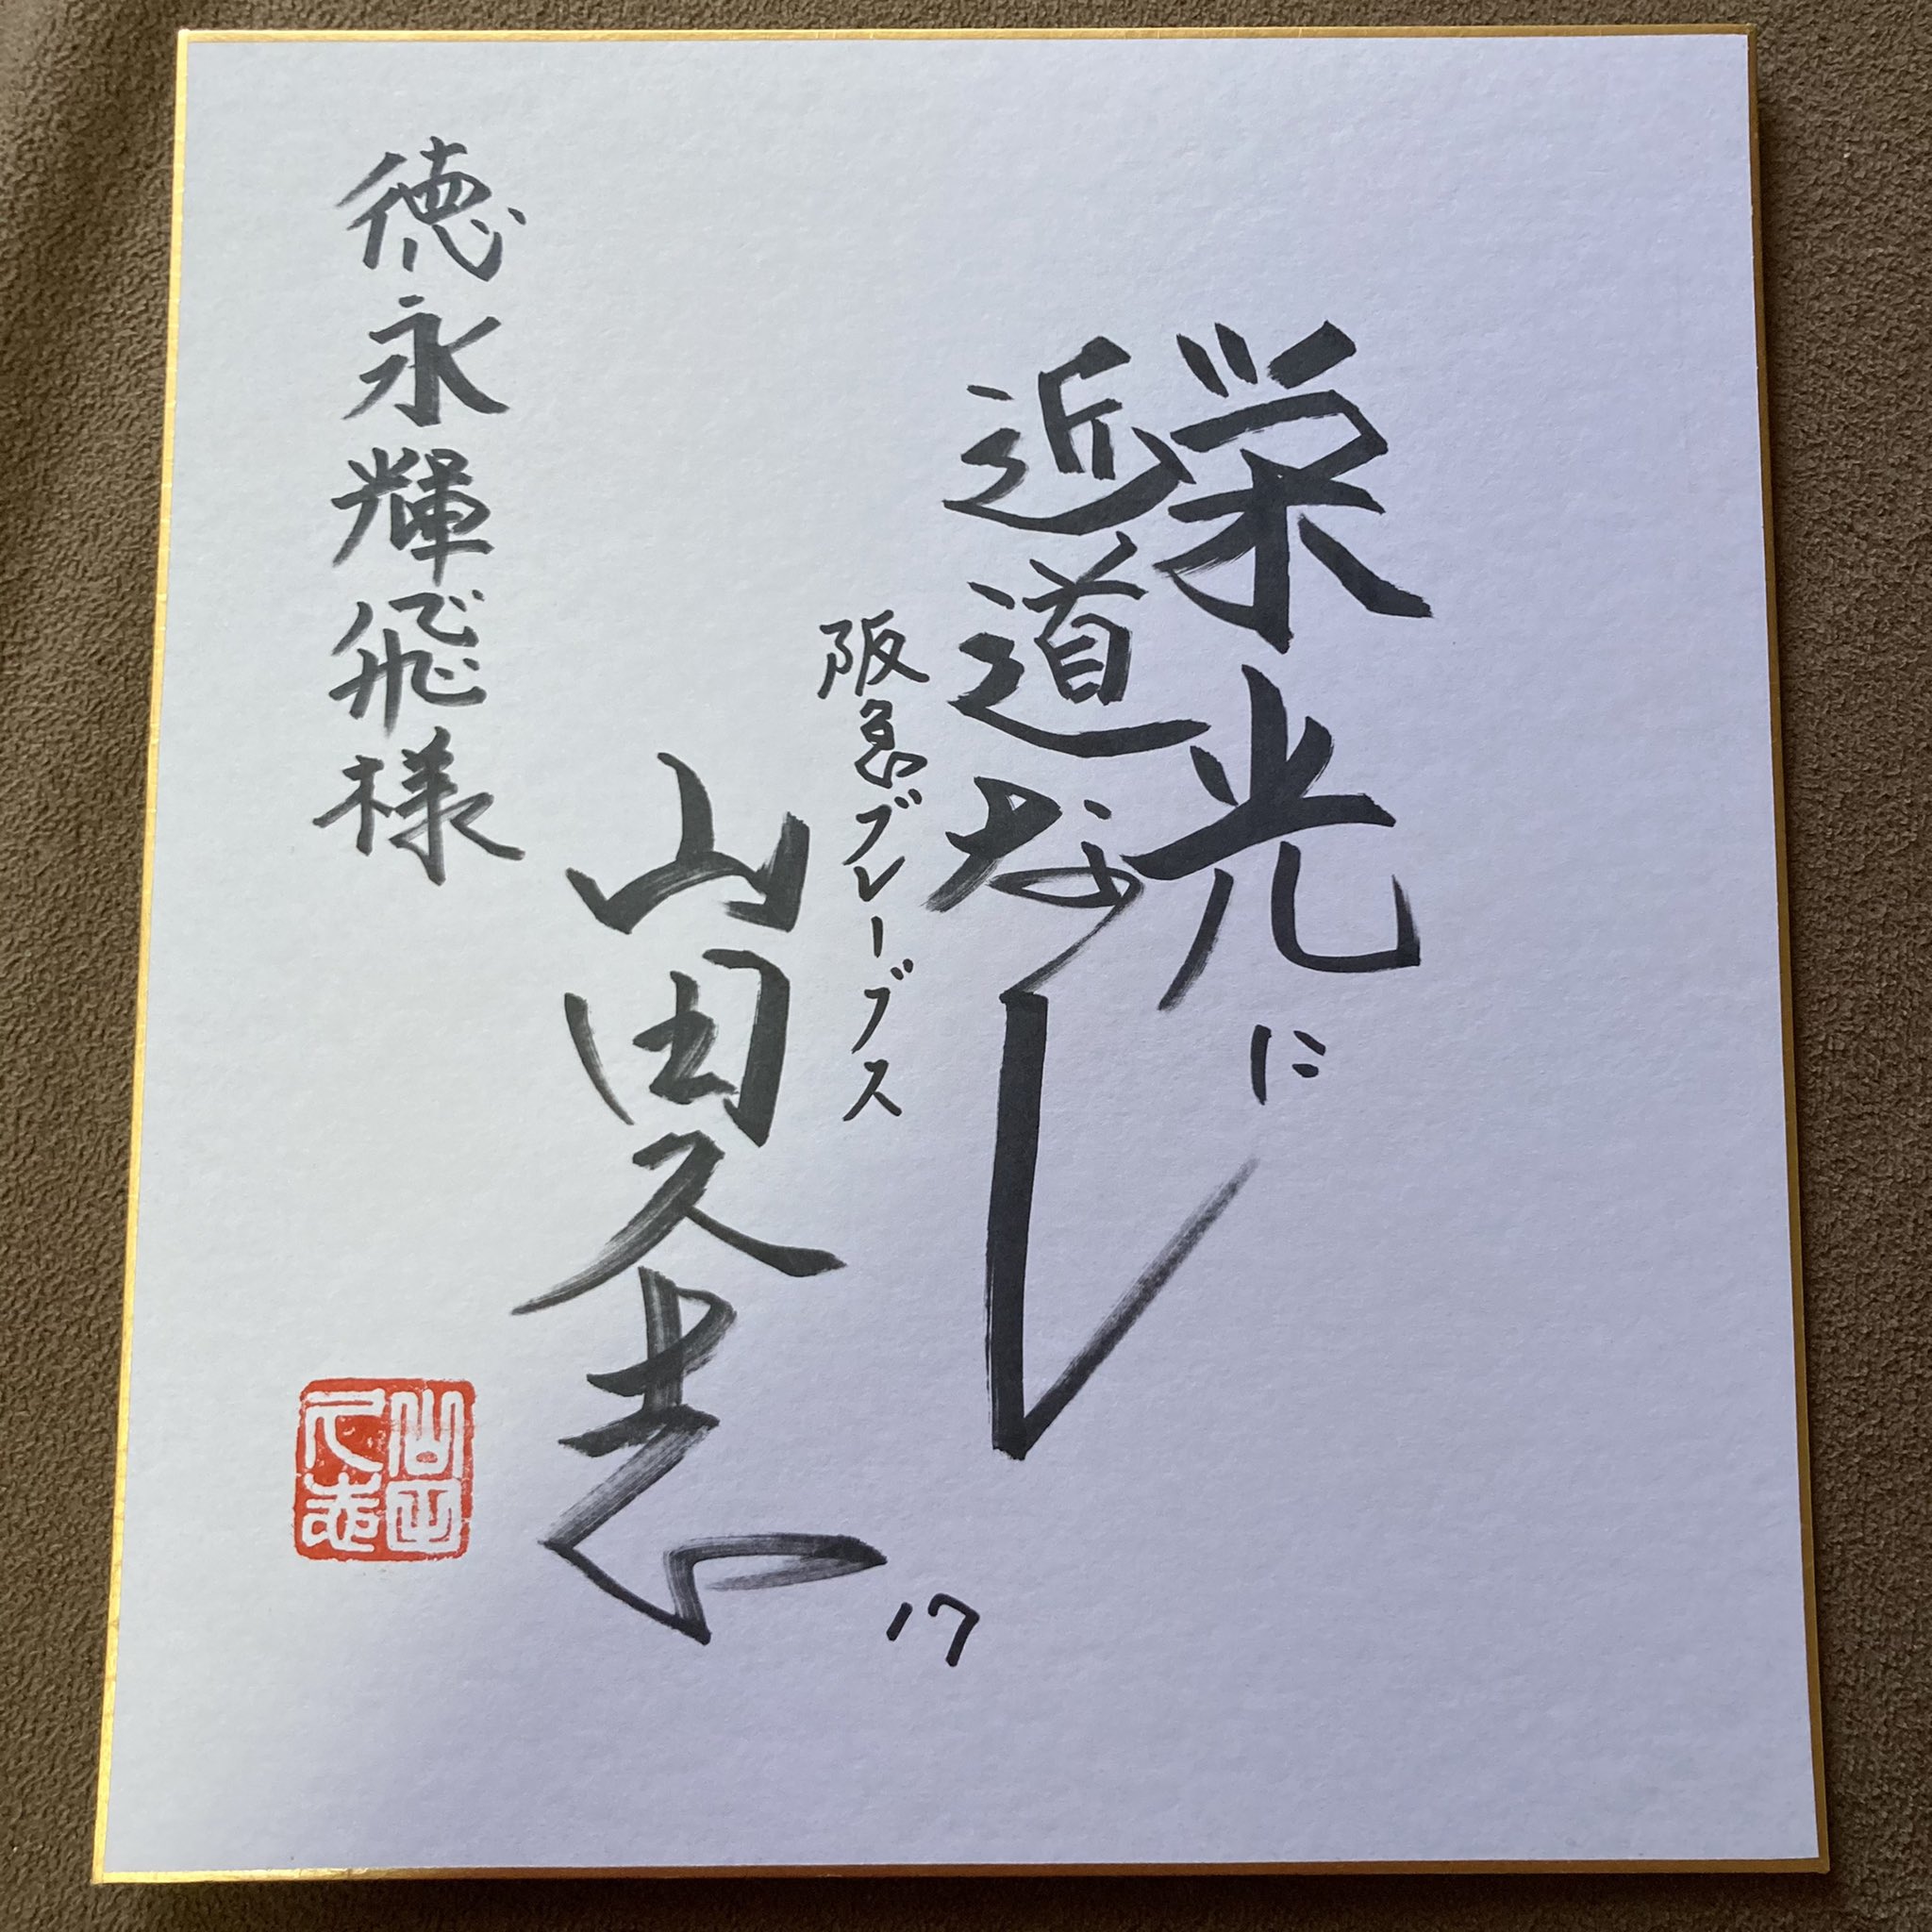 栄光に
近道なし
阪急ブレーブス
山田久志
17
徳永輝飛様
山田
久志